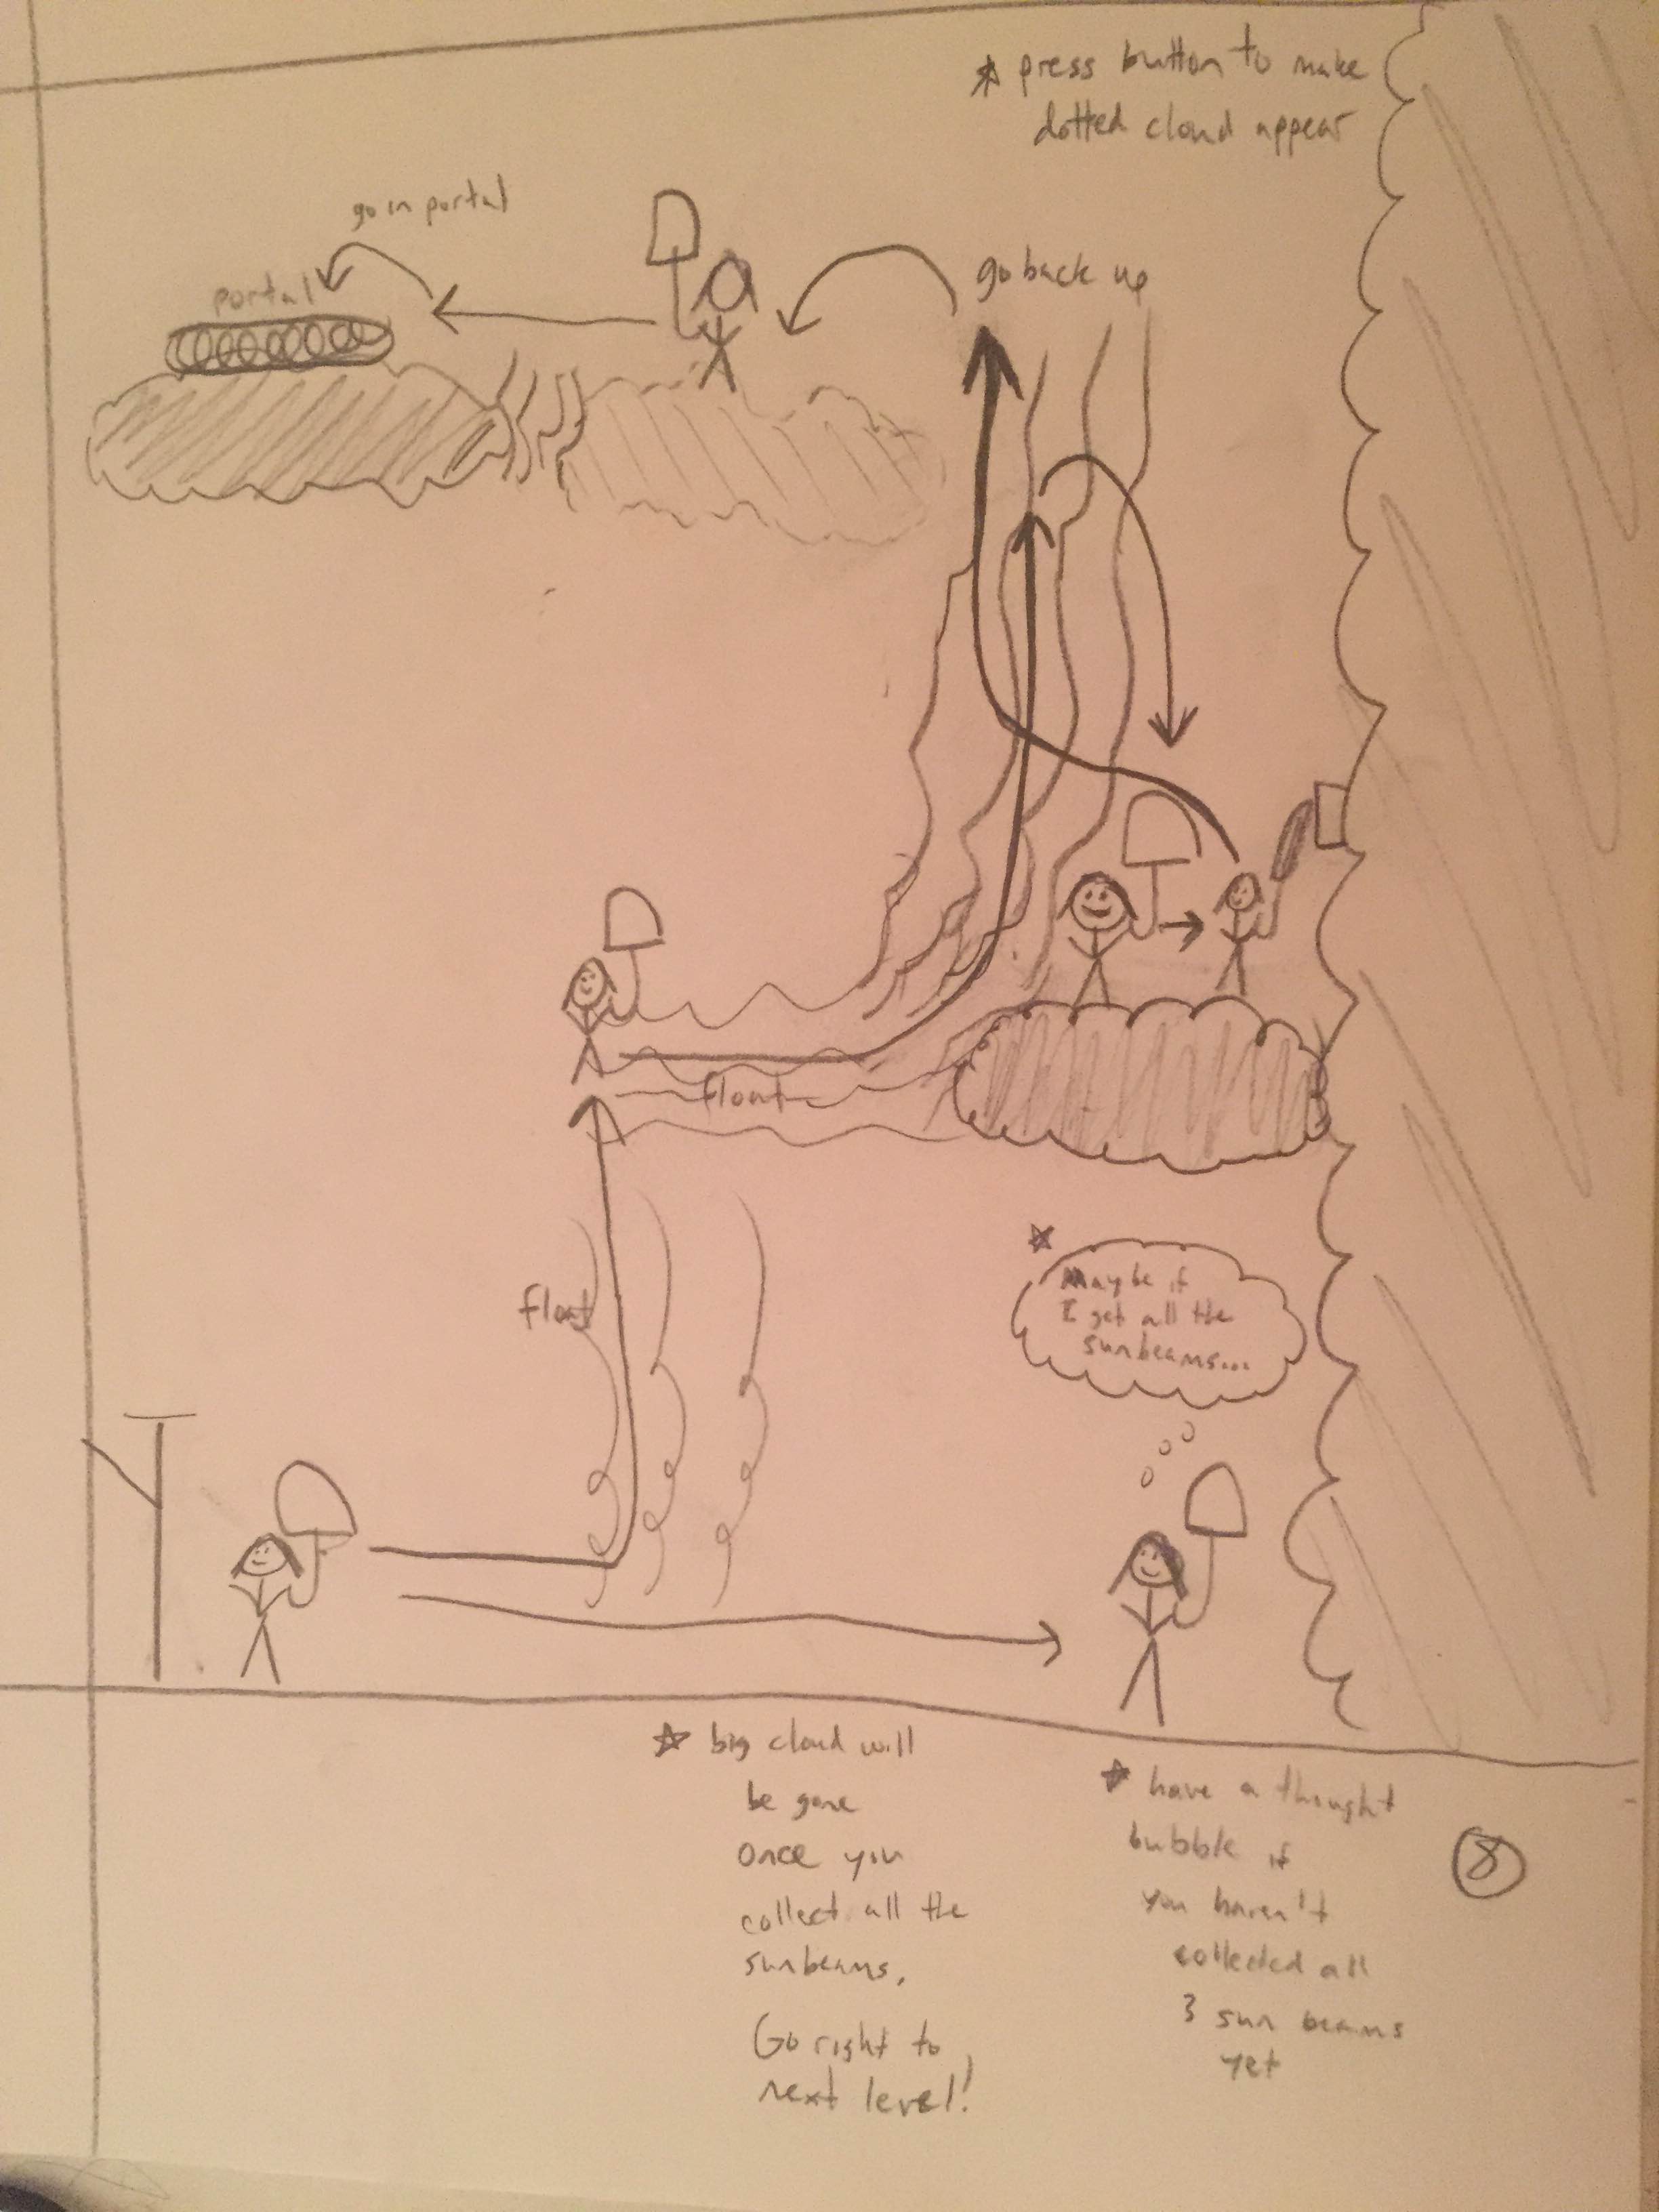 * press button to make
dotted cloud appear
go in portal
portal
go back up
float
float
* Maybe if
I get all the
sunbeams...
* big cloud will
be gone
once you
collect all the
sunbeams.
Go right to
next level!
* have a thought
bubble if
you haven't
collected all
3 sun beams
yet
8